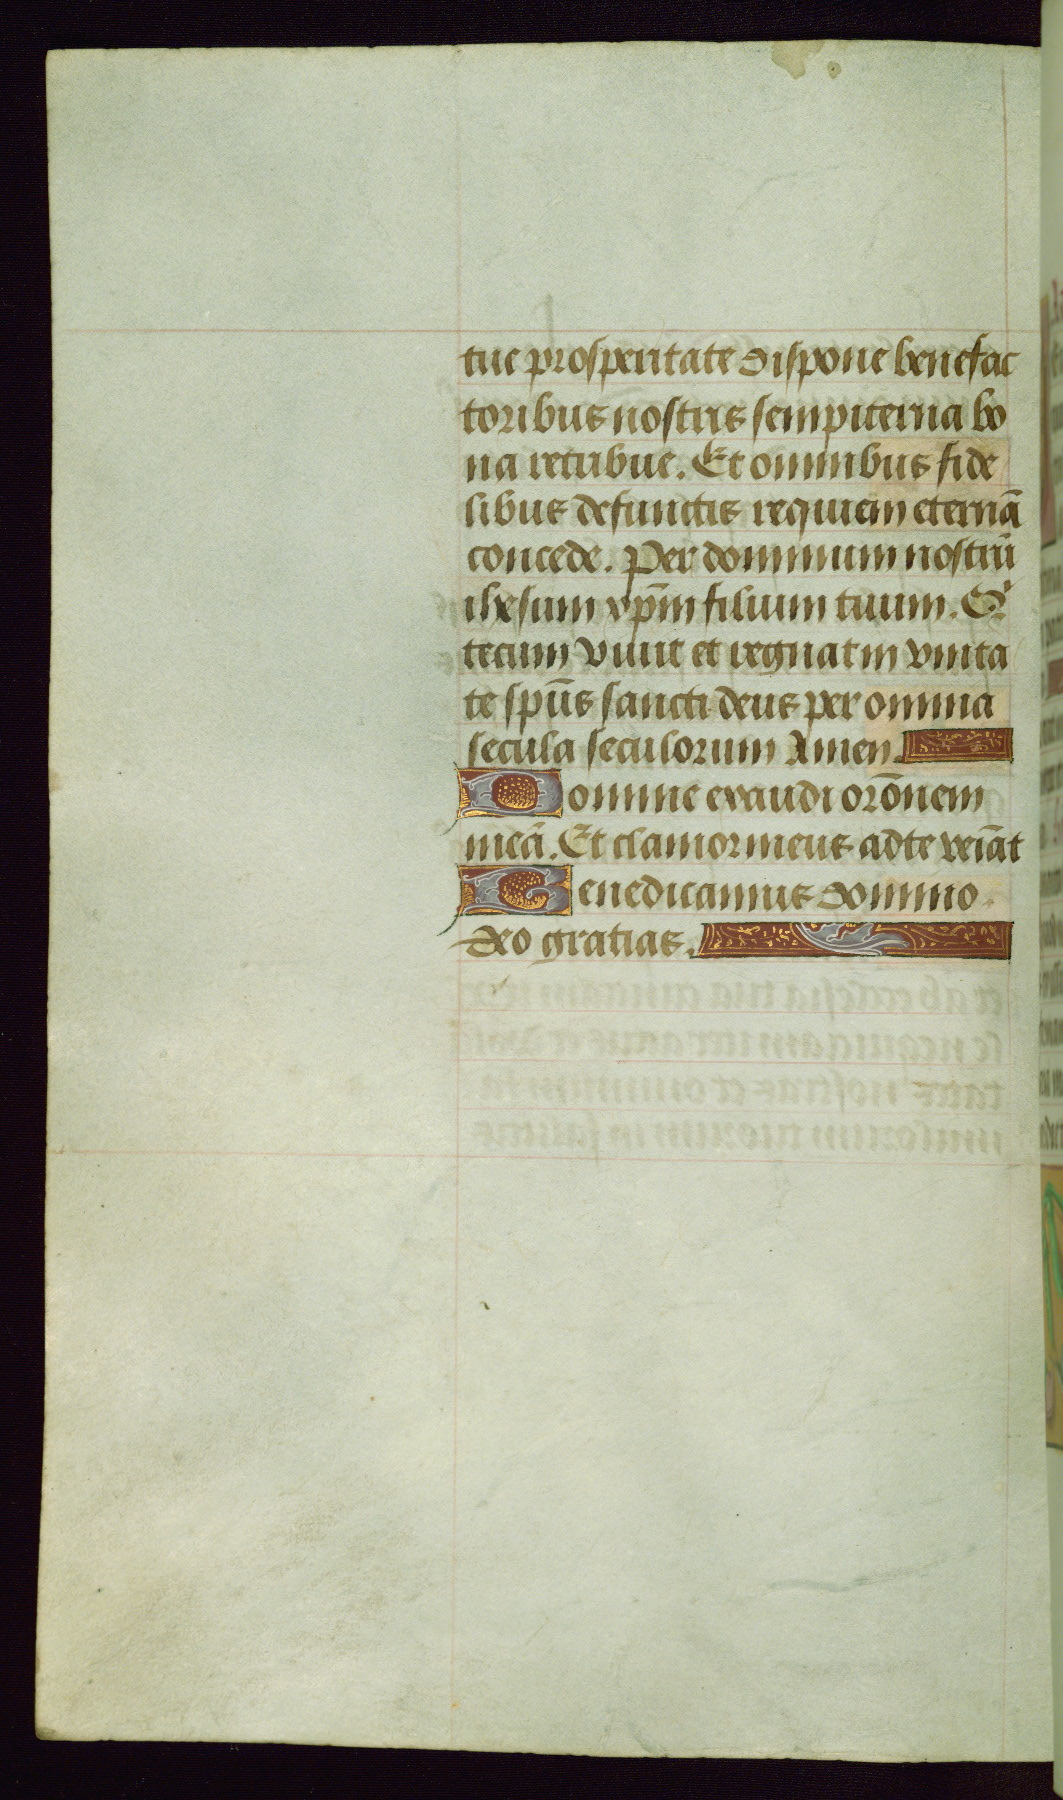 tue prosperitate dispone benefac
toribus nostris sempiterna bo
na retribue. Et omnibus fide
libus defunctis requiem eternā
concede. Per dominum nostrū
ihesum xp̄m filium tuum. Q'
tecum viuit et regnat in vnita
te sp̄us sancti deus per omnia
secula seculorum Amen.
Domine exaudi orōnem
meā. Et clamor meus ad te veiāt
Benedicamus domino.
deo gratias.